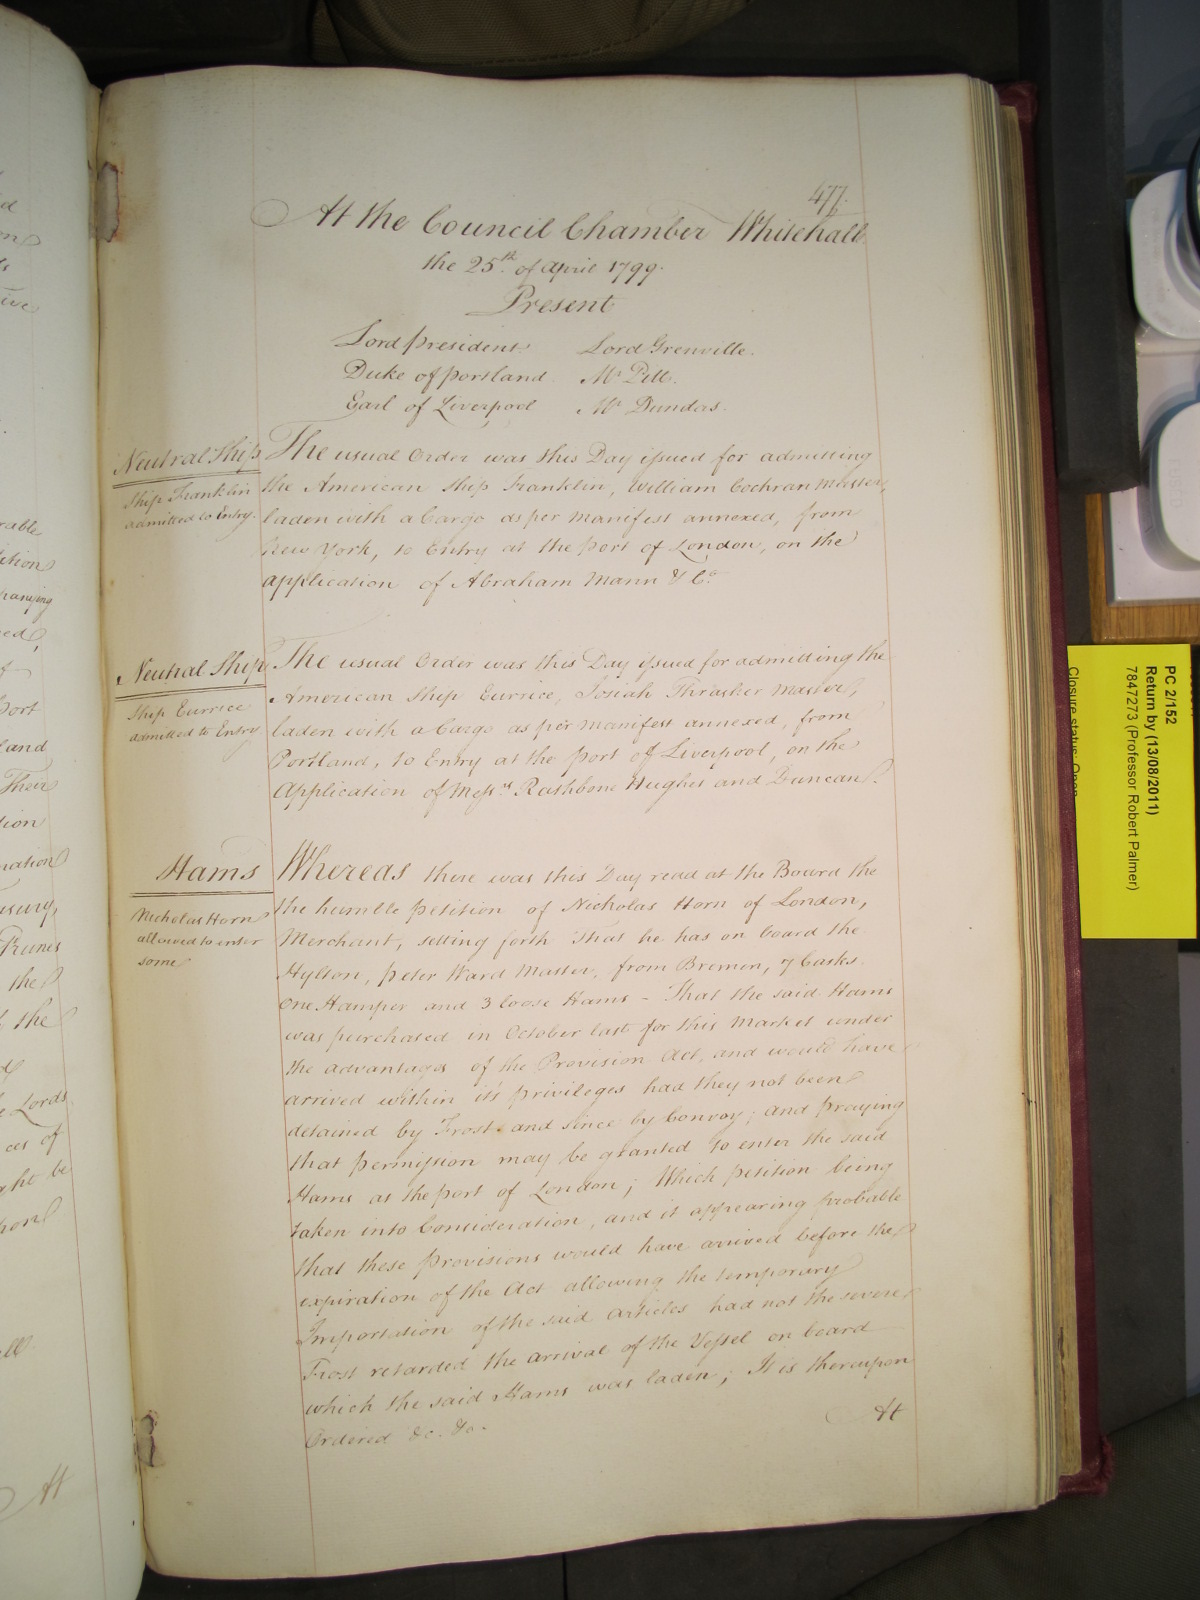 477.
At the Council Chamber Whitehall
the 25th. of April 1799.
Present
Lord President Lord Grenville.
Duke of Portland Mr Pitt.
Earl of Liverpool Mr Dundas.
Neutral Ship
Ship Franklin
admitted to Entry.
The usual Order was this Day issued for admitting
the American Ship Franklin, William Cochran Master,
laden with a Cargo as per Manifest annexed, from
New York, to Entry at the Port of London, on the
application of Abraham Mann & Co.
Neutral Ship
Ship Eurrice
admitted to Entry
The usual Order was this Day issued for admitting the
American Ship Eurrice, Josiah Thrasher Master,
laden with a Cargo as per Manifest annexed, from
Portland, to Entry at the Port of Liverpool, on the
Application of Messrs. Rathbone Hughes and Duncan.
Hams
Nicholas Horn
allowed to enter
some
Whereas there was this Day read at the Board the
the humble Petition of Nicholas Horn of London,
Merchant, setting forth That he has on board the
Hylton, Peter Ward Master, from Bremen, 7 Casks
one Hamper and 3 loose Hams - That the said Hams
was purchased in October last for this Market under
the advantages of the Provision Act, and would have
arrived within it's privileges had they not been
detained by Frost and since by Convoy; and praying
that permission may be granted to enter the said
Hams at the port of London; Which petition being
taken into Consideration, and it appearing probable
that these provisions would have arrived before the
expiration of the Act allowing the temporary
Importation of the said Articles had not the severe
Frost retarded the arrival of the Vessel on board
which the said Hams was laden; It is thereupon
Ordered &c. &c.
At
PC 2/152
Return by (13/08/2011)
7847273 (Professor Robert Palmer)
Closure status: Open